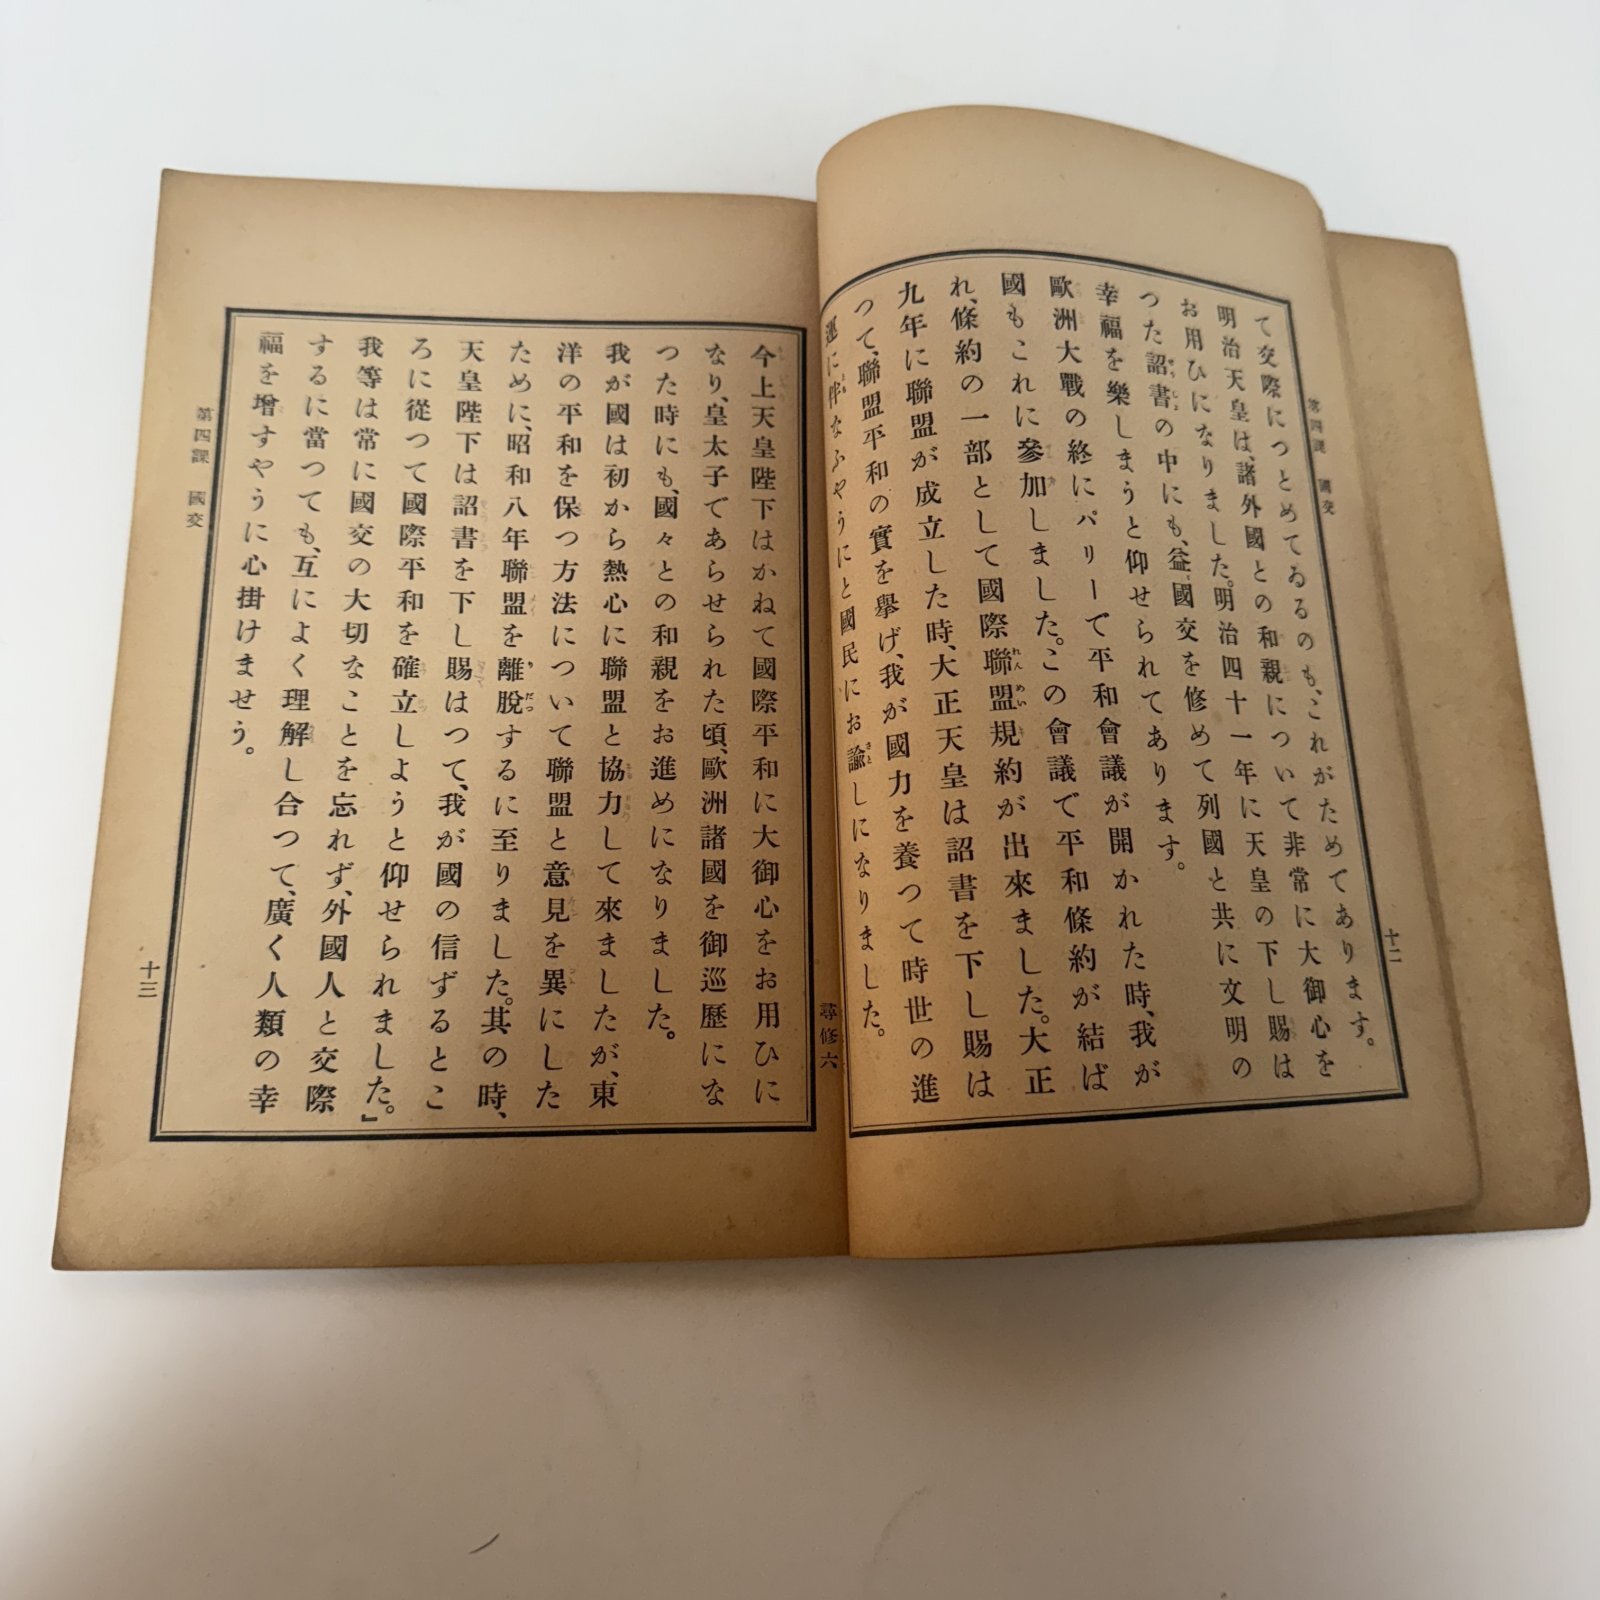 第四課 國交
十二
て交際につとめてゐるのも、これがためであります。
明治天皇は、諸外國との和親について非常に大御心を
お用ひになりました。明治四十一年に天皇の下し賜は
つた詔書の中にも、益國交を修めて列國と共に文明の
幸福を樂しまうと仰せられてあります。
歐洲大戰の終にパリーで平和會議が開かれた時、我が
國もこれに參加しました。この會議で平和條約が結ば
れ、條約の一部として國際聯盟規約が出來ました。大正
九年に聯盟が成立した時、大正天皇は詔書を下し賜は
つて、聯盟平和の實を擧げ、我が國力を養つて時世の進
運に伴なふやうにと國民にお諭しになりました。
尋修六
今上天皇陛下はかねて國際平和に大御心をお用ひに
なり、皇太子であらせられた頃、歐洲諸國を御巡歷にな
つた時にも、國々との和親をお進めになりました。
我が國は初から熱心に聯盟と協力して來ましたが、東
洋の平和を保つ方法について聯盟と意見を異にした
ために、昭和八年聯盟を離脫するに至りました。其の時、
天皇陛下は詔書を下し賜はつて、我が國の信ずるとこ
ろに從つて國際平和を確立しようと仰せられました。」
我等は常に國交の大切なことを忘れず、外國人と交際
するに當つても、互によく理解し合つて、廣く人類の幸
福を增すやうに心掛けませう。
第四課 國交
十三